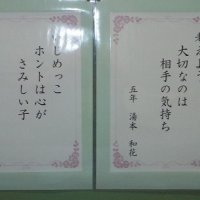 大切なのは
相手の気持ち
五年 湯本 和花
じめっこ
ホントは心が
さみしい子